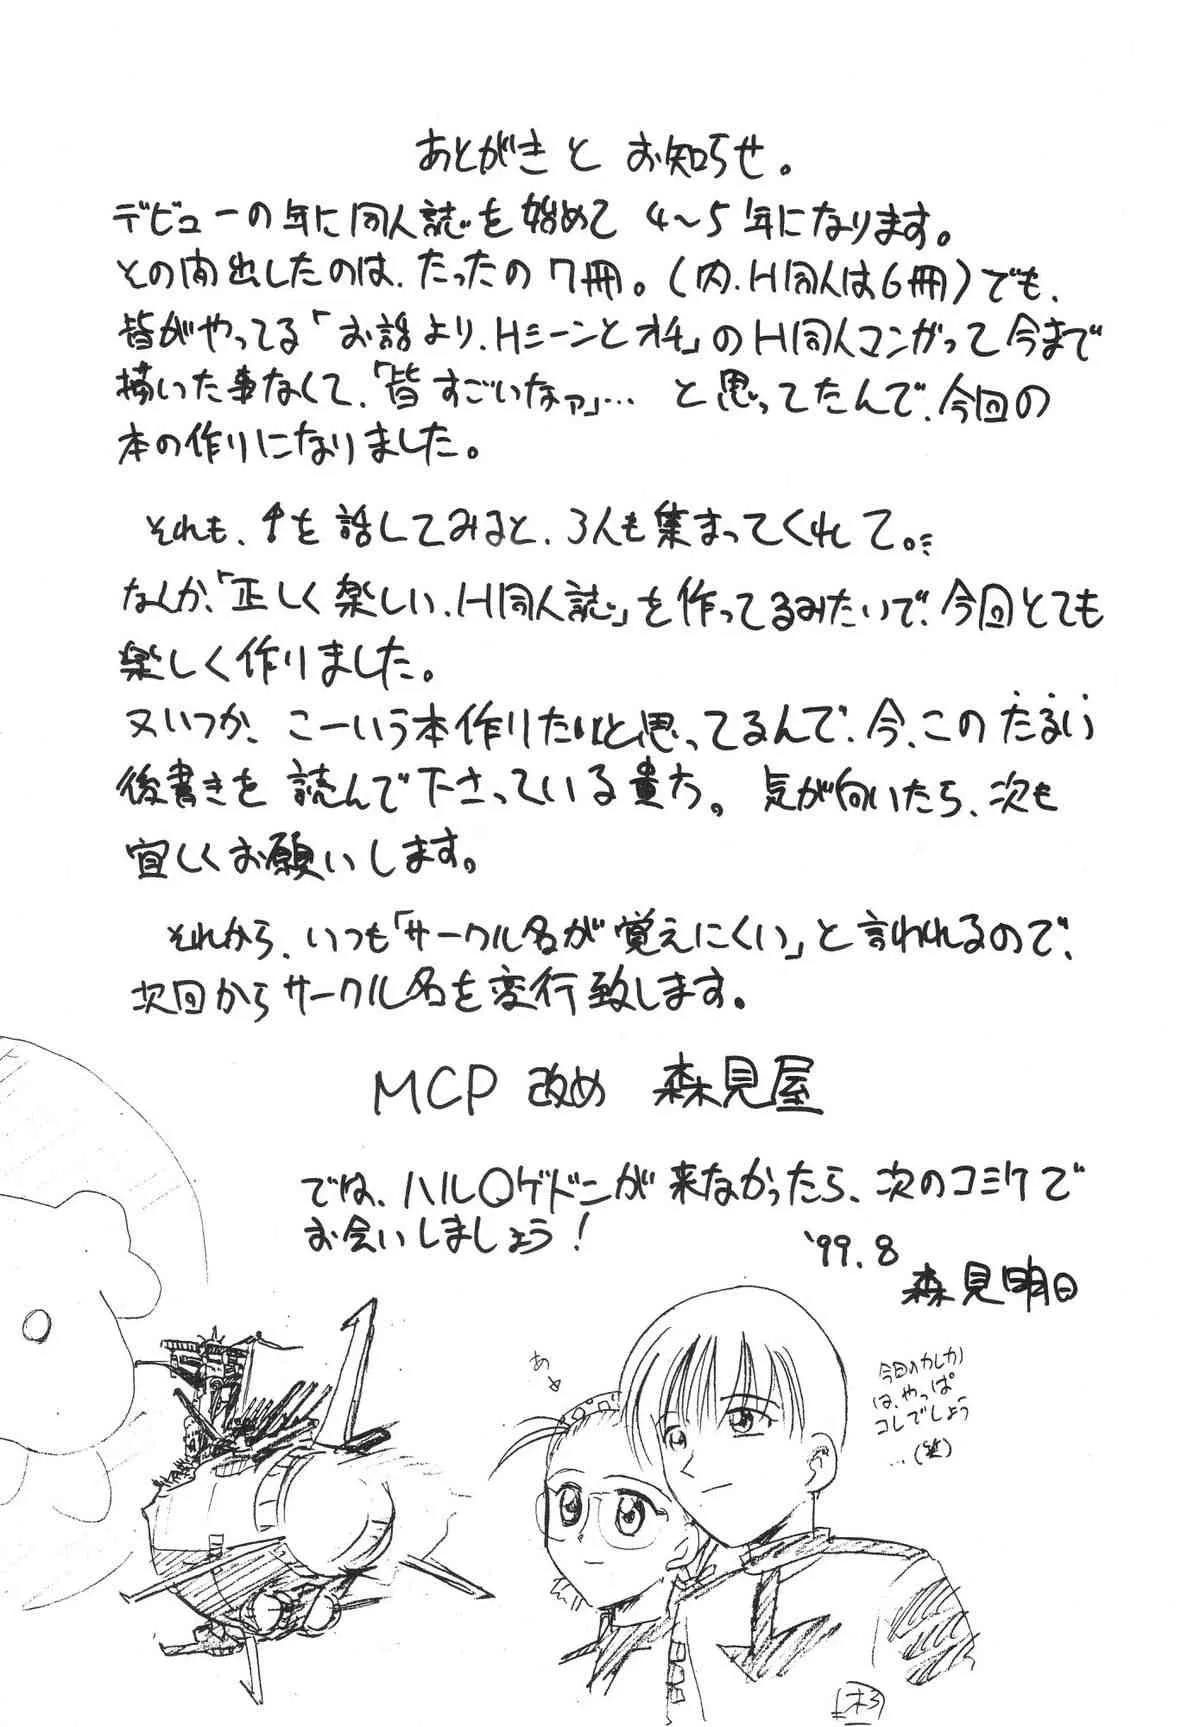 あとがきと お知らせ。
デビューの年に同人誌を始めて 4〜5年になります。
その間出したのは、たったの7冊。(内、H同人は6冊)でも、
皆がやってる「お話より、Hシーンとオチ」のH同人マンガって今まで
描いた事なくて、「皆すごいなァ」… と思ってたんで、今回の
本の作りになりました。
それも、↑を話してみると、3人も集まってくれて。…
なんか、「正しく楽しい、H同人誌」を作ってるみたいで、今回とても
楽しく作りました。
又いつか、こーいう本作りたいと思ってるんで、今、このたるい
後書きを読んで下さっている貴方。気が向いたら、次も
宜しくお願いします。
それから、いつも「サークル名が覚えにくい」と言われるので、
次回からサークル名を変行致します。
MCP 改め 森見屋
では、ハル〇ゲドンが来なかったら、次のコミケで
お会いしましょう!
'99.8
森見明日
あ
今回のカしカ
は、やっぱ
コレでしょう
…(笑)